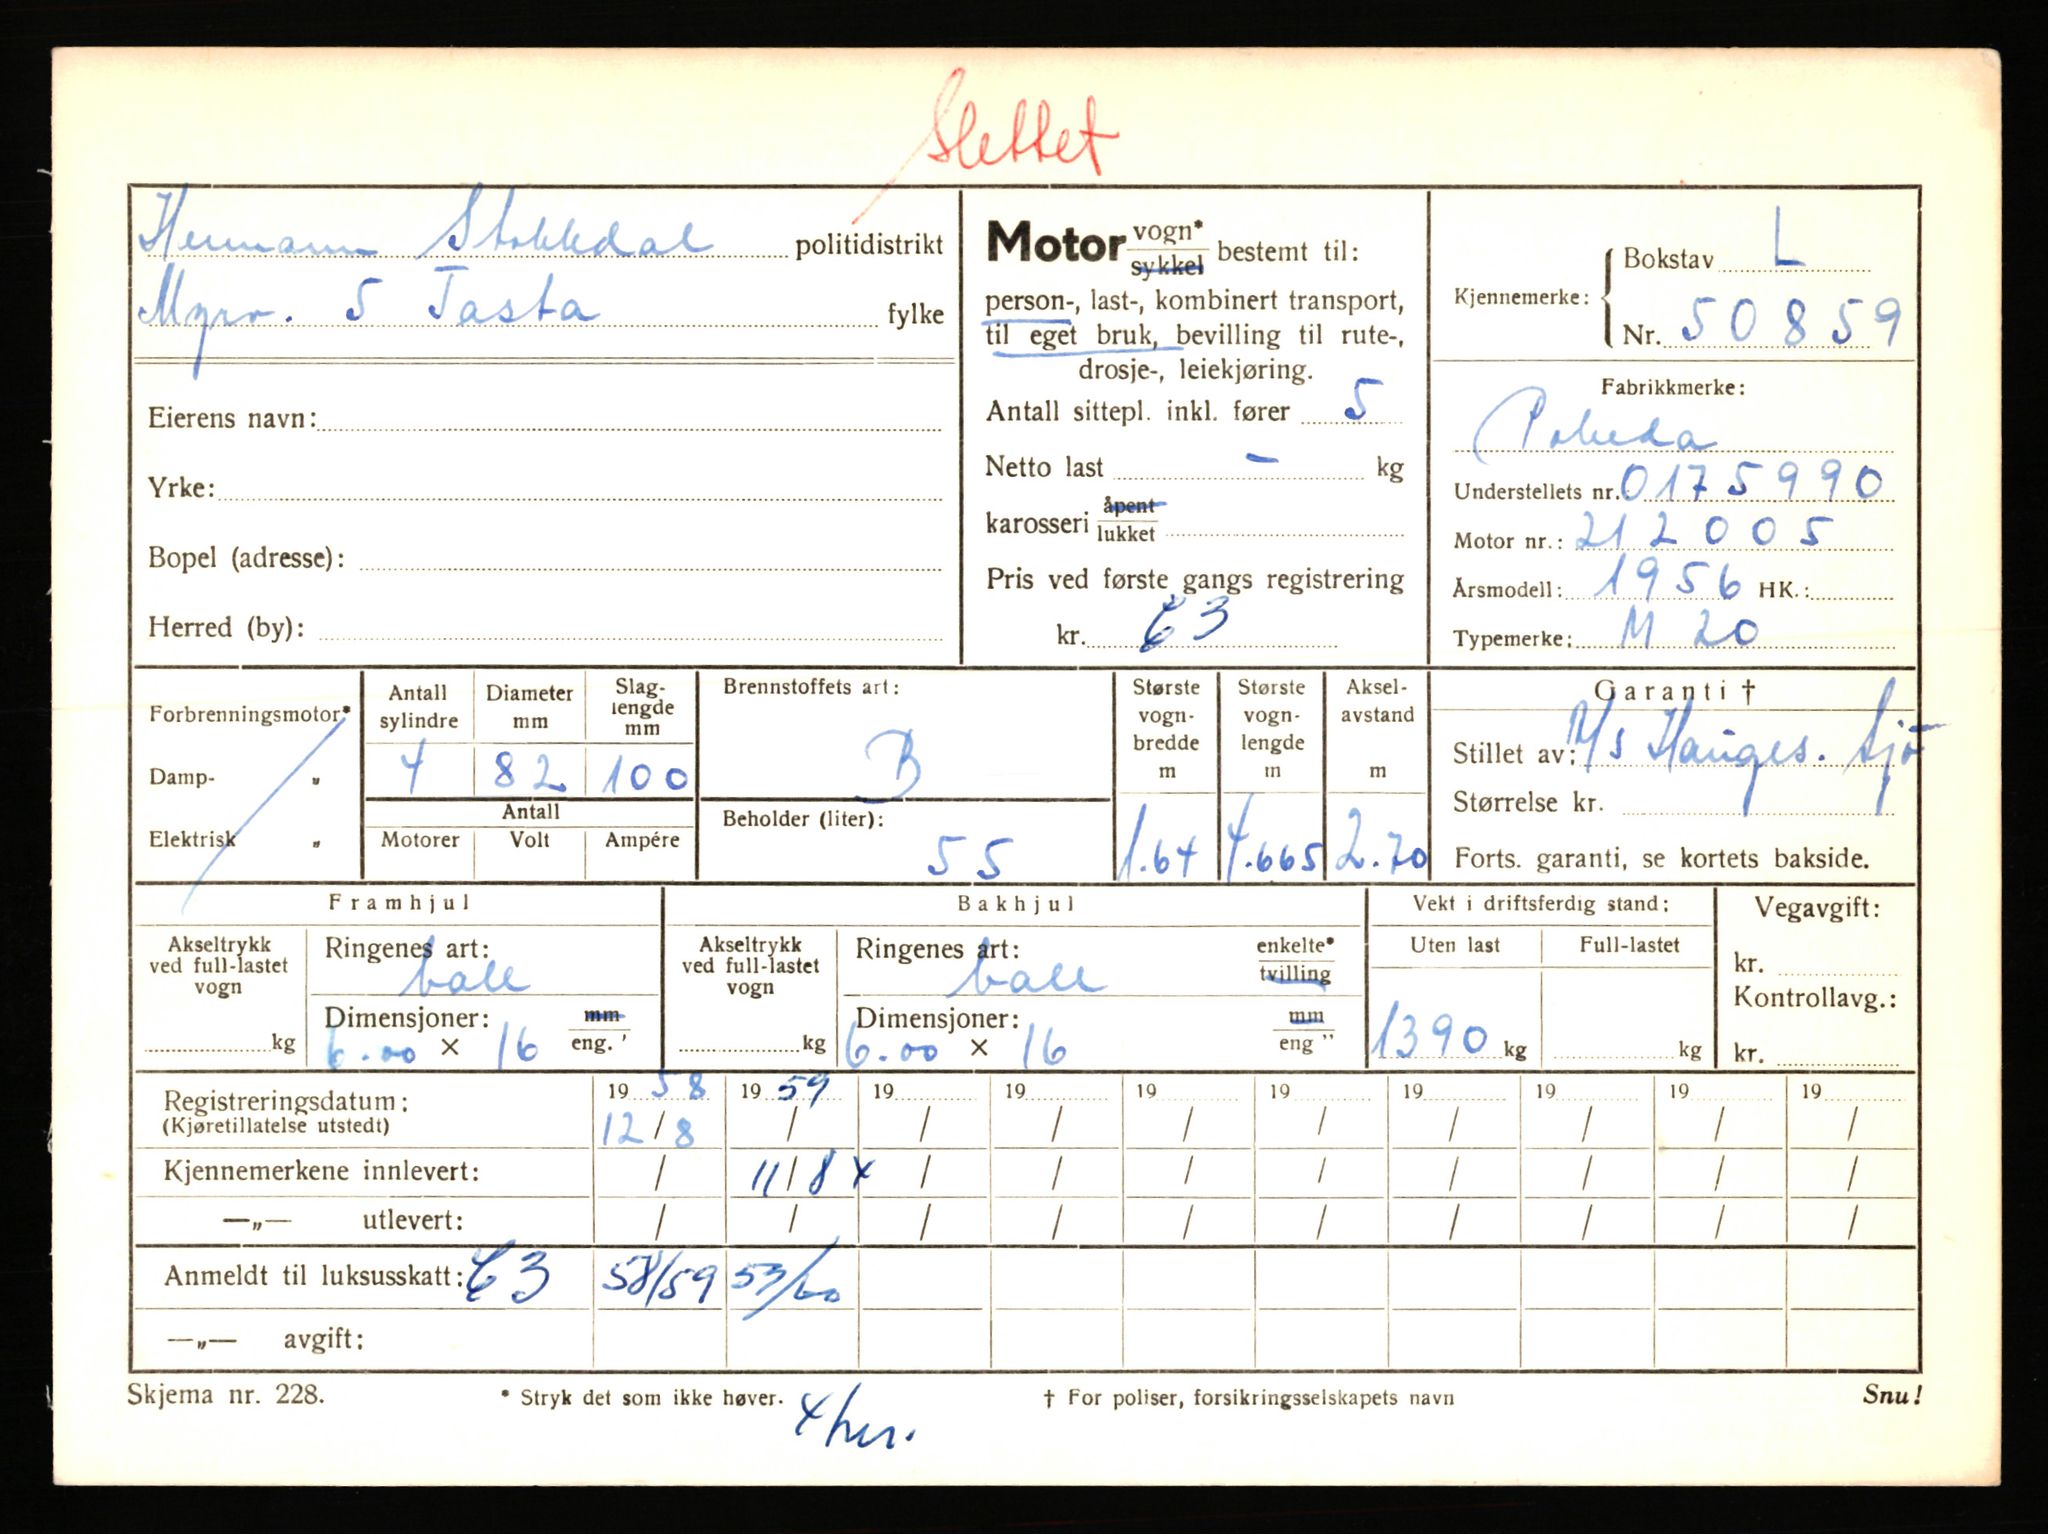 Slettet
Hermann Stokkedal politidistrikt
Myrv. 5 Tasta fylke
Eierens navn:
Yrke:
Bopel (adresse):
Herred (by):
Motor vogn* sykkel bestemt til:
person-, last-, kombinert transport,
til eget bruk, bevilling til rute-,
drosje-, leiekjøring.
Antall sittepl. inkl. fører 5
Netto last - kg
karosseri åpent lukket
Pris ved første gangs registrering
kr. C3
Kjennemerke: Bokstav L
Nr. 50859
Fabrikkmerke:
Pobeda
Understellets nr. 0175990
Motor nr.: 212005
Årsmodell: 1956 HK.:
Typemerke: M 20
Forbrenningsmotor*
Damp- "
Elektrisk "
Antall sylindre 4
Diameter mm 82
Slag-lengde mm 100
Antall
Motorer Volt Ampére
Brennstoffets art:
B
Beholder (liter):
55
Største vogn-bredde m 1.64
Største vogn-lengde m 4.665
Aksel-avstand m 2.70
Garanti †
Stillet av: A/S Hauges. Sjø
Størrelse kr.
Forts. garanti, se kortets bakside.
Framhjul
Akseltrykk ved full-lastet vogn
kg
Ringenes art:
ball
Dimensjoner: mm
6.00 × 16 eng. '
Bakhjul
Akseltrykk ved full-lastet vogn
kg
Ringenes art: enkelte*
ball tvilling
Dimensjoner: mm
6.00 × 16 eng "
Vekt i driftsferdig stand:
Uten last Full-lastet
1390 kg kg
Vegavgift:
kr.
Kontrollavg.:
kr.
Registreringsdatum: 1958 1959 19 19 19 19 19 19 19 19
(Kjøretillatelse utstedt) 12/8 / / / / / / / / /
Kjennemerkene innlevert: / 11/8 x / / / / / / / /
—„— utlevert: / / / / / / / / / /
Anmeldt til luksusskatt: C3 58/59 59/60
—„— avgift:
Skjema nr. 228. * Stryk det som ikke høver. † For poliser, forsikringsselskapets navn Snu!
x her.